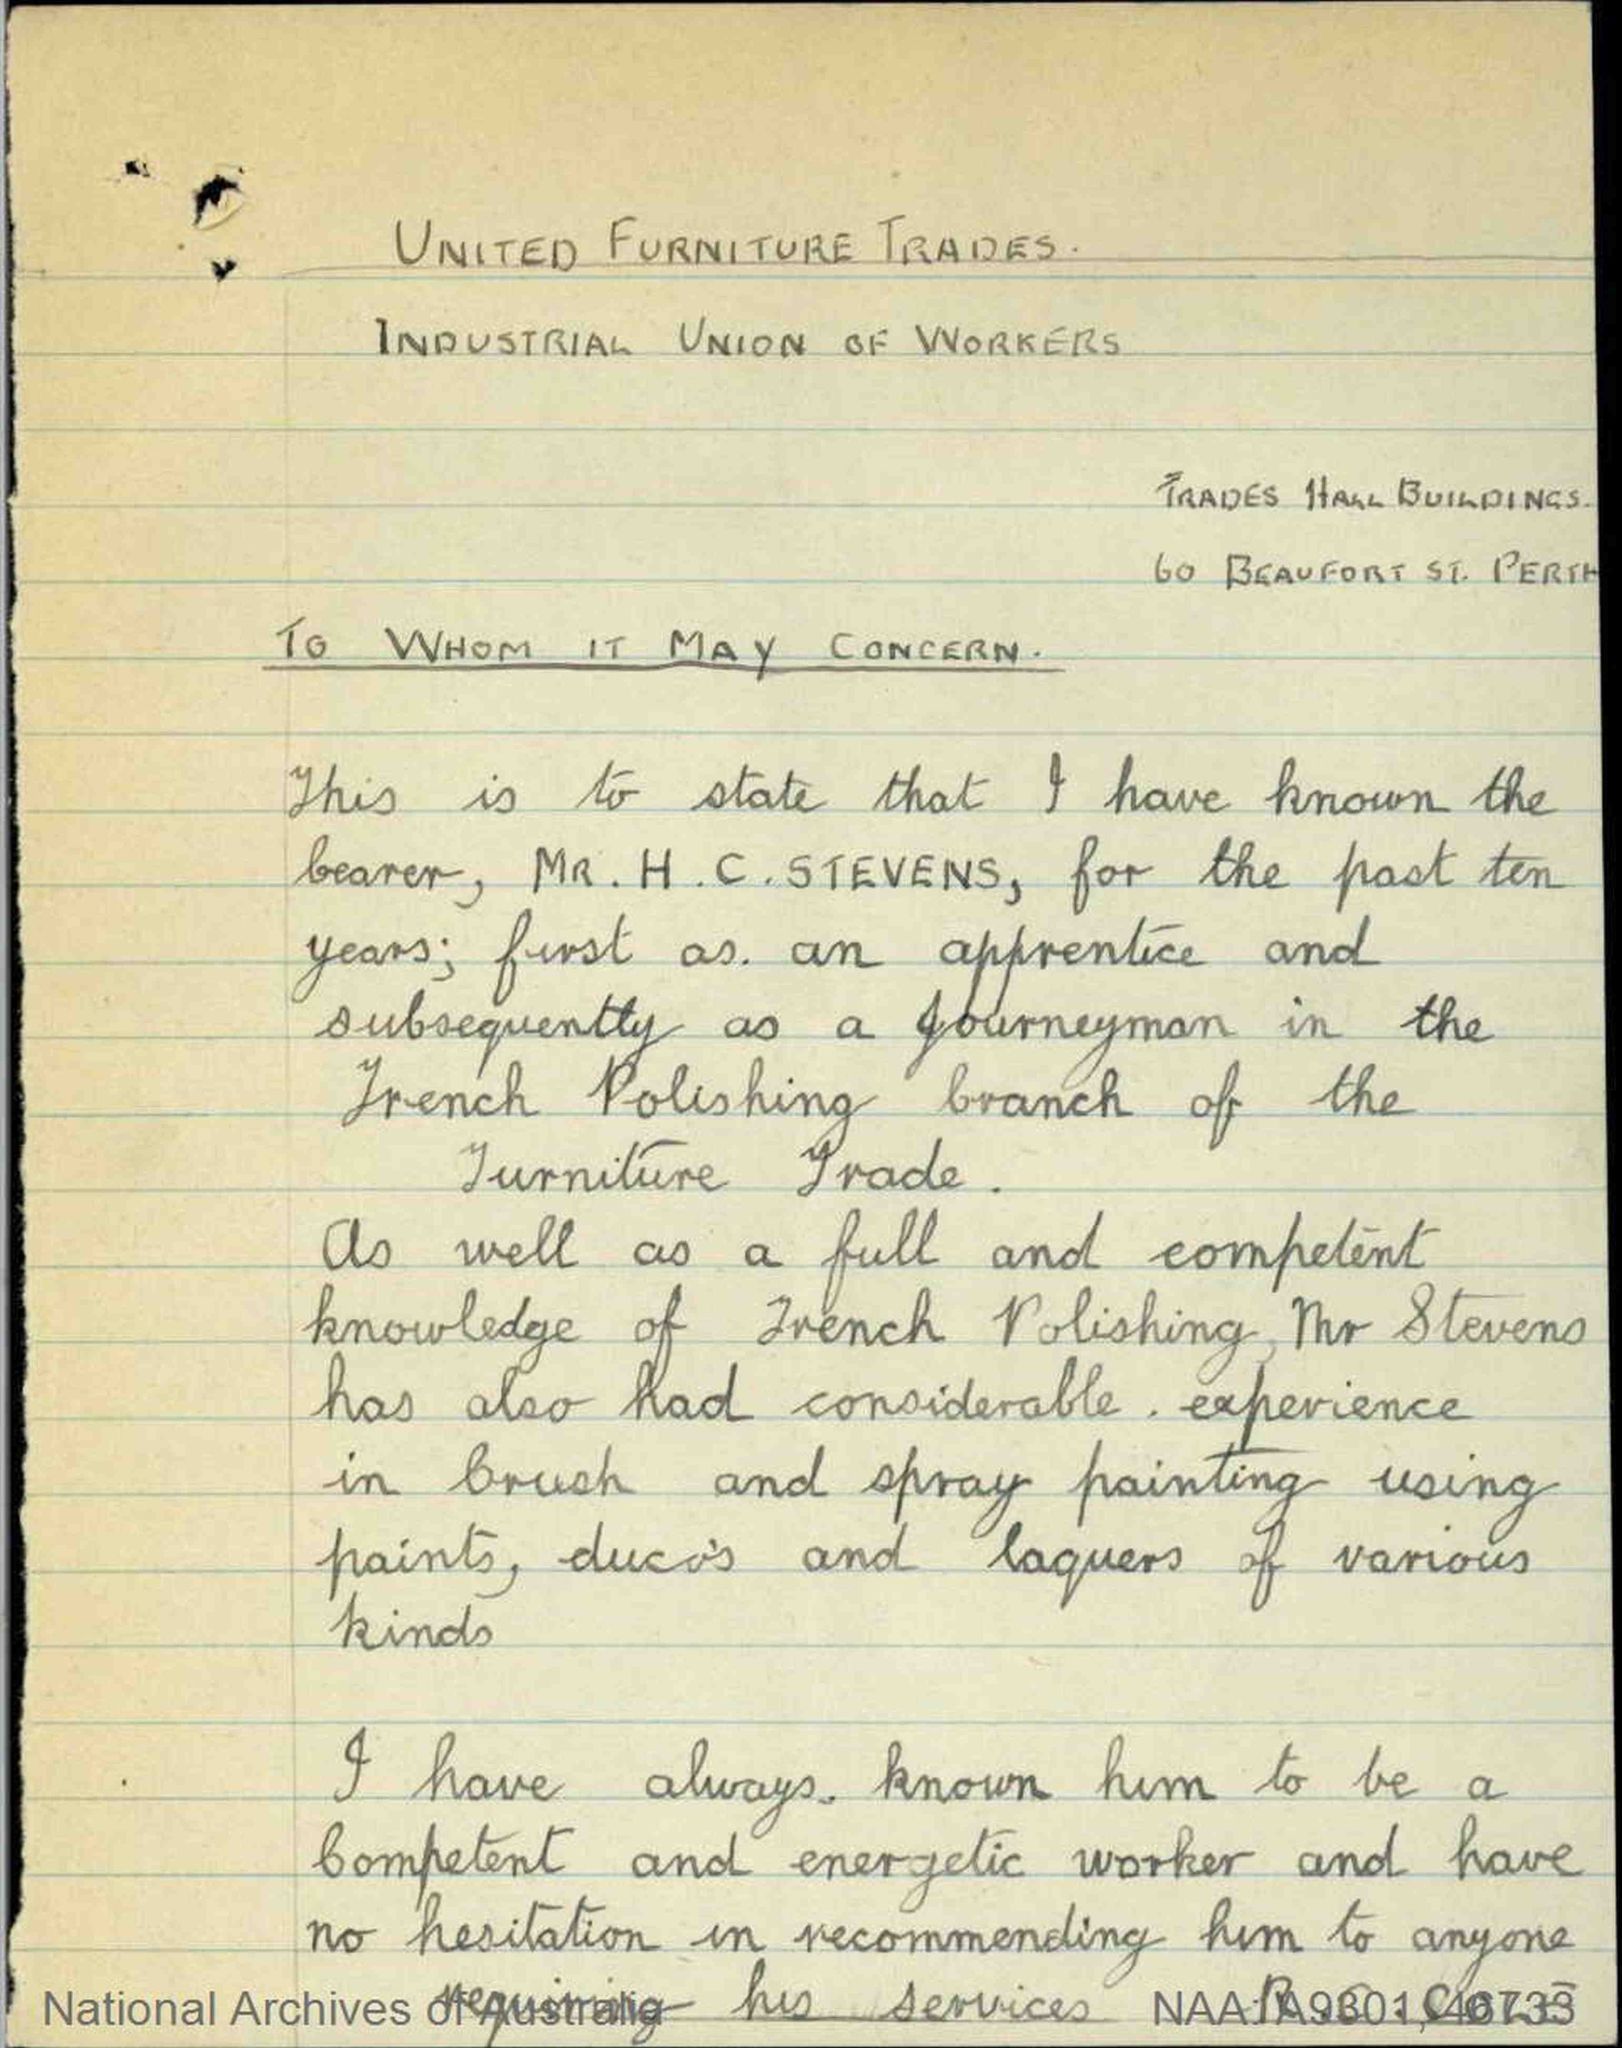 UNITED FURNITURE TRADES.
INDUSTRIAL UNION OF WORKERS
TRADES HALL BUILDINGS.
60 BEAUFORT ST. PERTH
TO WHOM IT MAY CONCERN.
This is to state that I have known the
bearer, MR. H. C. STEVENS, for the past ten
years; first as. an apprentice and
subsequently as a Journeyman in the
French Polishing branch of the
Furniture Trade.
As well as a full and competent
knowledge of French Polishing, Mr Stevens
has also had considerable. experience
in brush and spray painting using
paints, duco's and laquers of various
kinds
I have always. known him to be a
Competent and energetic worker and have
no hesitation in recommending him to anyone
requiring his services
National Archives of Australia NAA: A9301, 46733